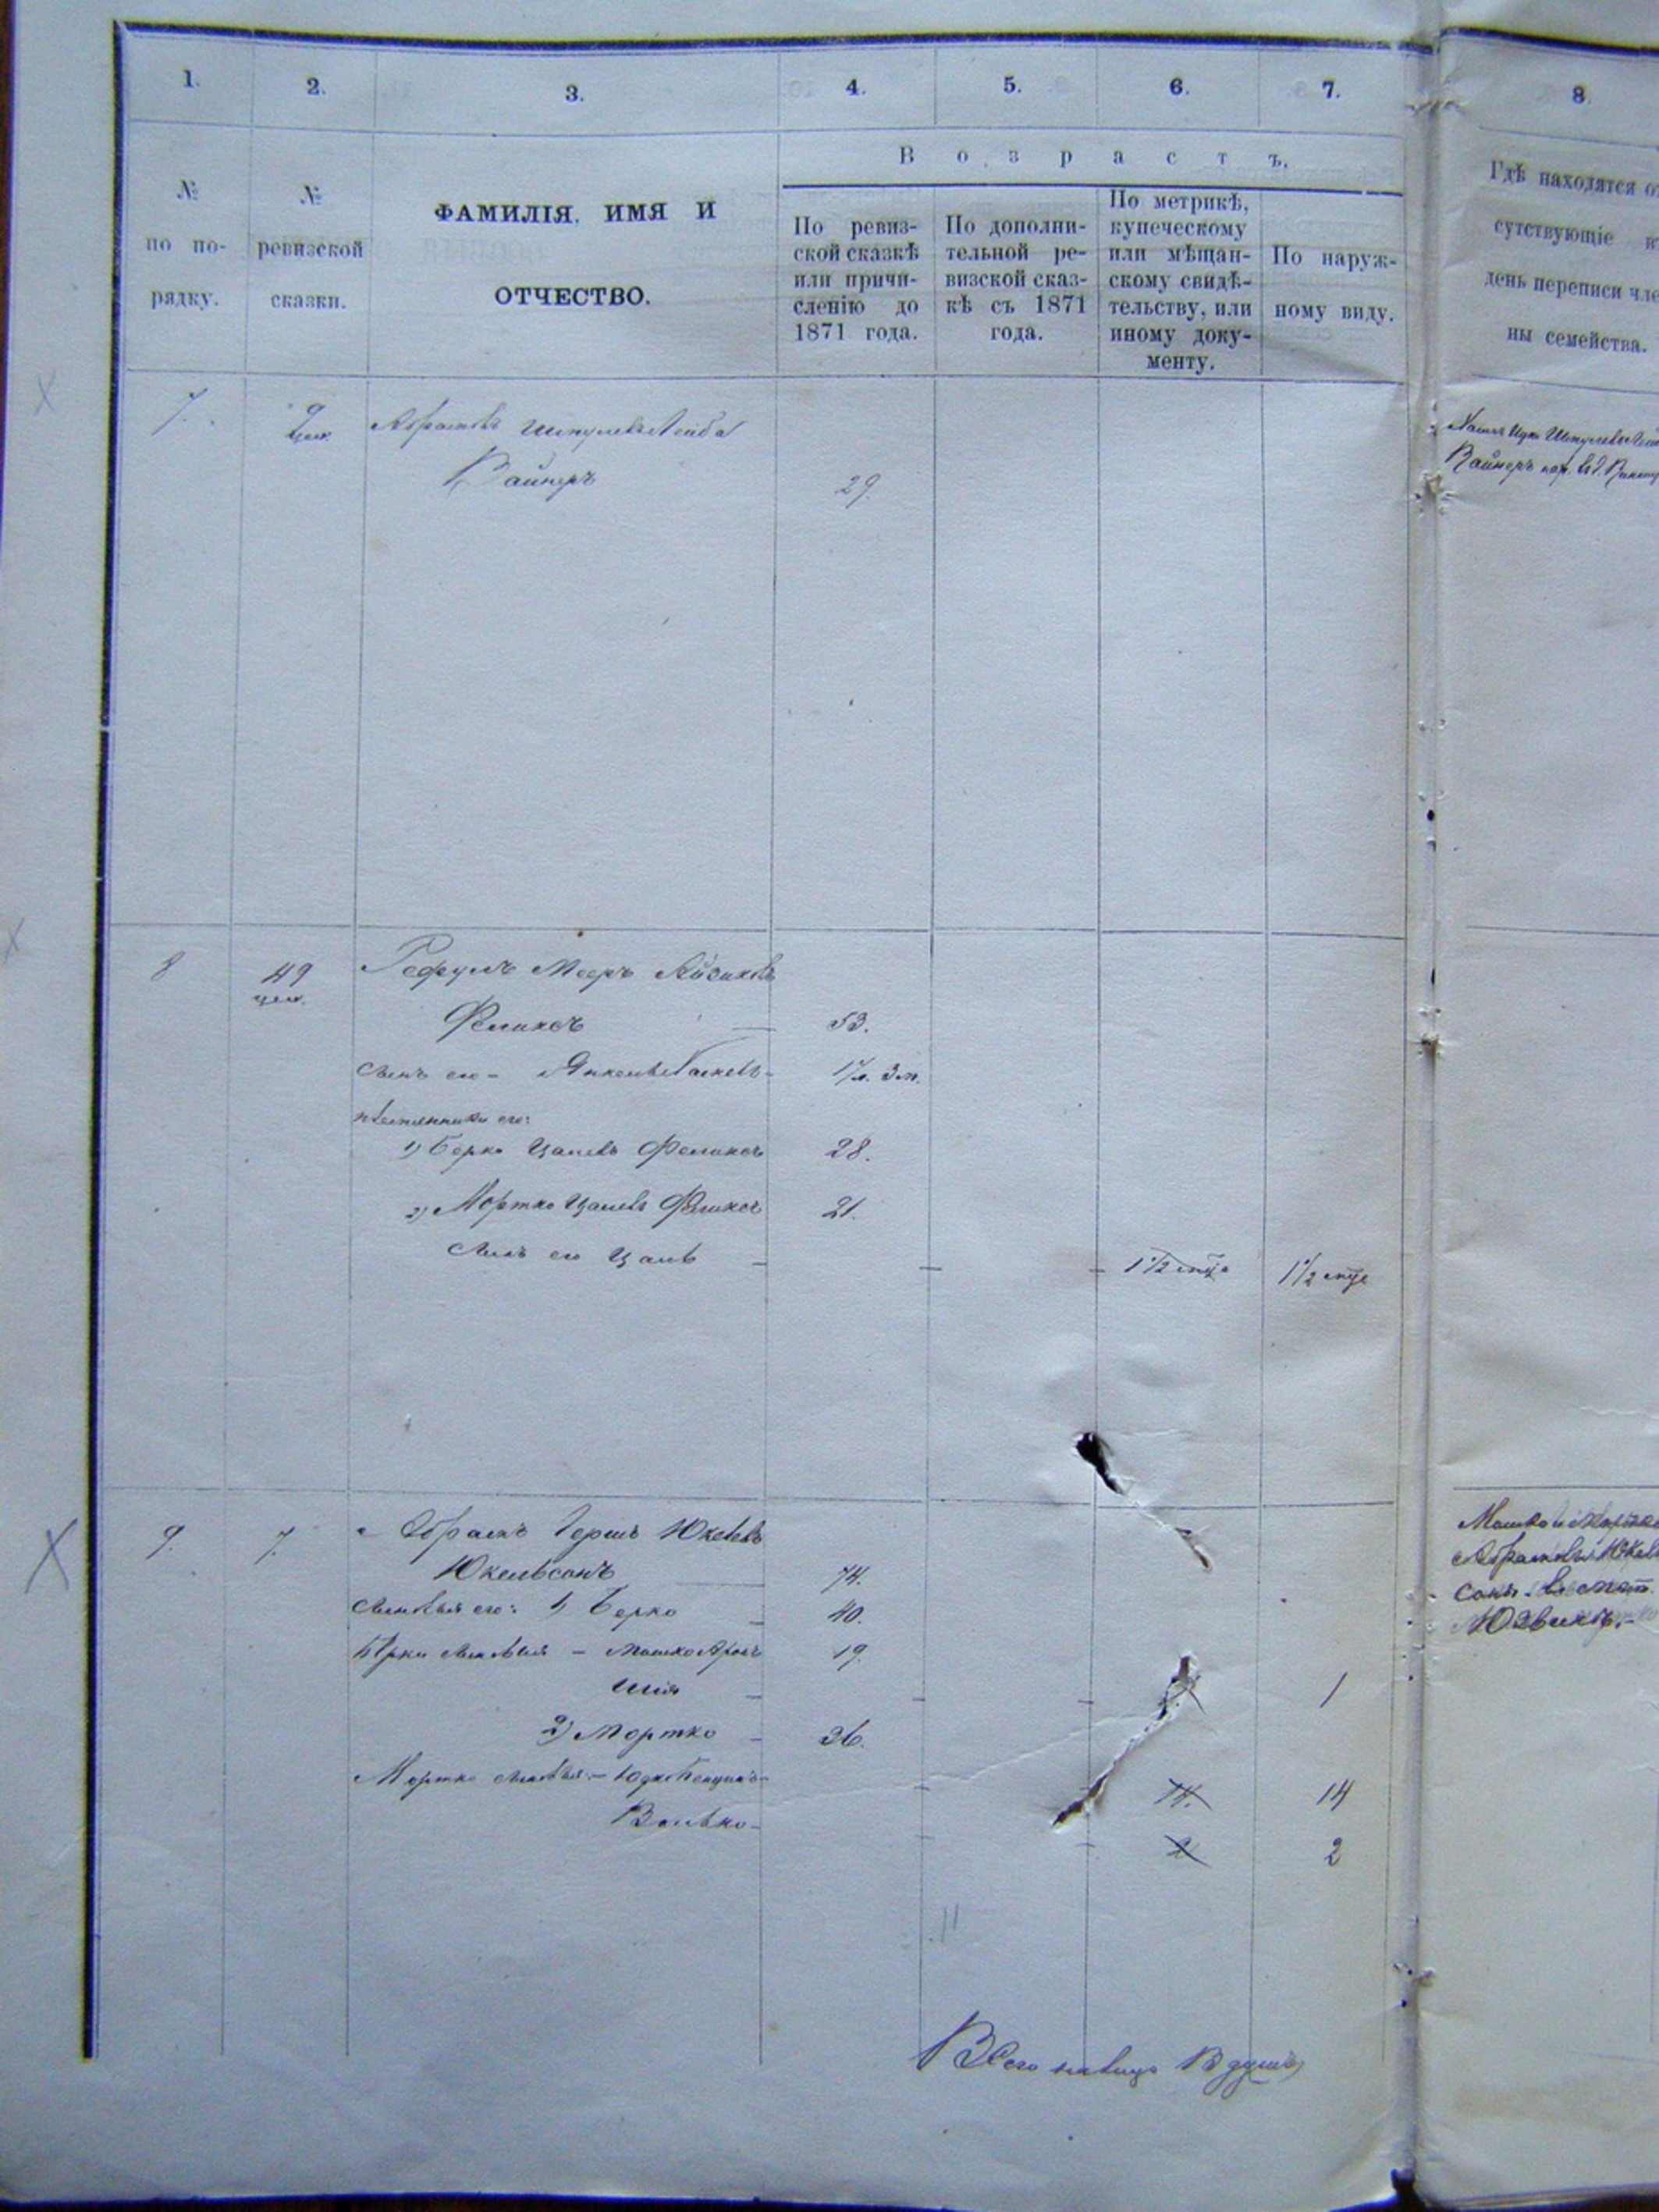 1. 2. 3. 4. 5. 6. 7. 8.
№ по по-рядку.
№ ревизской сказки.
ФАМИЛІЯ, ИМЯ И
ОТЧЕСТВО.
Возрастъ.
По ревиз-
ской сказкѣ
или причи-
сленію до
1871 года.
По дополни-
тельной ре-
визской сказ-
кѣ съ 1871
года.
По метрикѣ,
купеческому
или мѣщан-
скому свидѣ-
тельству, или
иному доку-
менту.
По наруж-
ному виду.
Гдѣ находятся от
сутствующіе въ
день переписи чле
ны семейства.
7. 9 Абрамъ Лейба
Вайнеръ 29.
Вайнеръ
8 49 Мееръ Айзиковъ
Феликсъ 53.
Сынъ его - 17 л. 3 м.
племянники его:
1) Берко Цалевъ Феликсъ 28.
2) Мортко Цалевъ Феликсъ 21.
Сынъ его Цаль - - - 1 1/2 мца 1 1/2 мца
9. 7. Абрамъ Гершъ Юкелевъ
Юкельсонъ 74.
Сыновья его: 1) Берко - 40.
Берки сыновья - Мошко Аронъ 19.
Шія - - - 1
2) Мортко - 36.
Мортко сыновья: - Юдко Бенціонъ - 14. 14
Волько - - - 2 2
Мошко и Мортко
Абрамовы Юкель
соны - въ мѣст.
Всего налицо 13 душъ